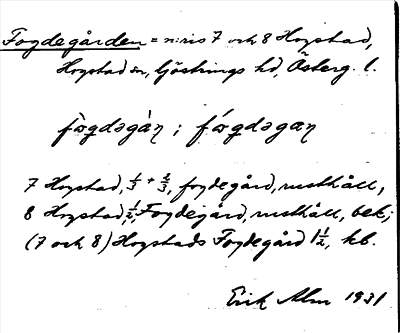 Fogdegården = n:ris 7 och 8 Hogstad,
Hogstad sn, Göstrings hd, Österg. l.
fo̳gdəgàɳ ; fó̳gdəgaɳ
7 Hogstad, 1/3 + 2/3, fogdegård, rusthåll,
8 Hogstad, 1/2, Fogdegård, rusthåll, bek;
(7 och 8) Hogstads Fogdegård 1 1/2, kb.
Erik Alm 1931